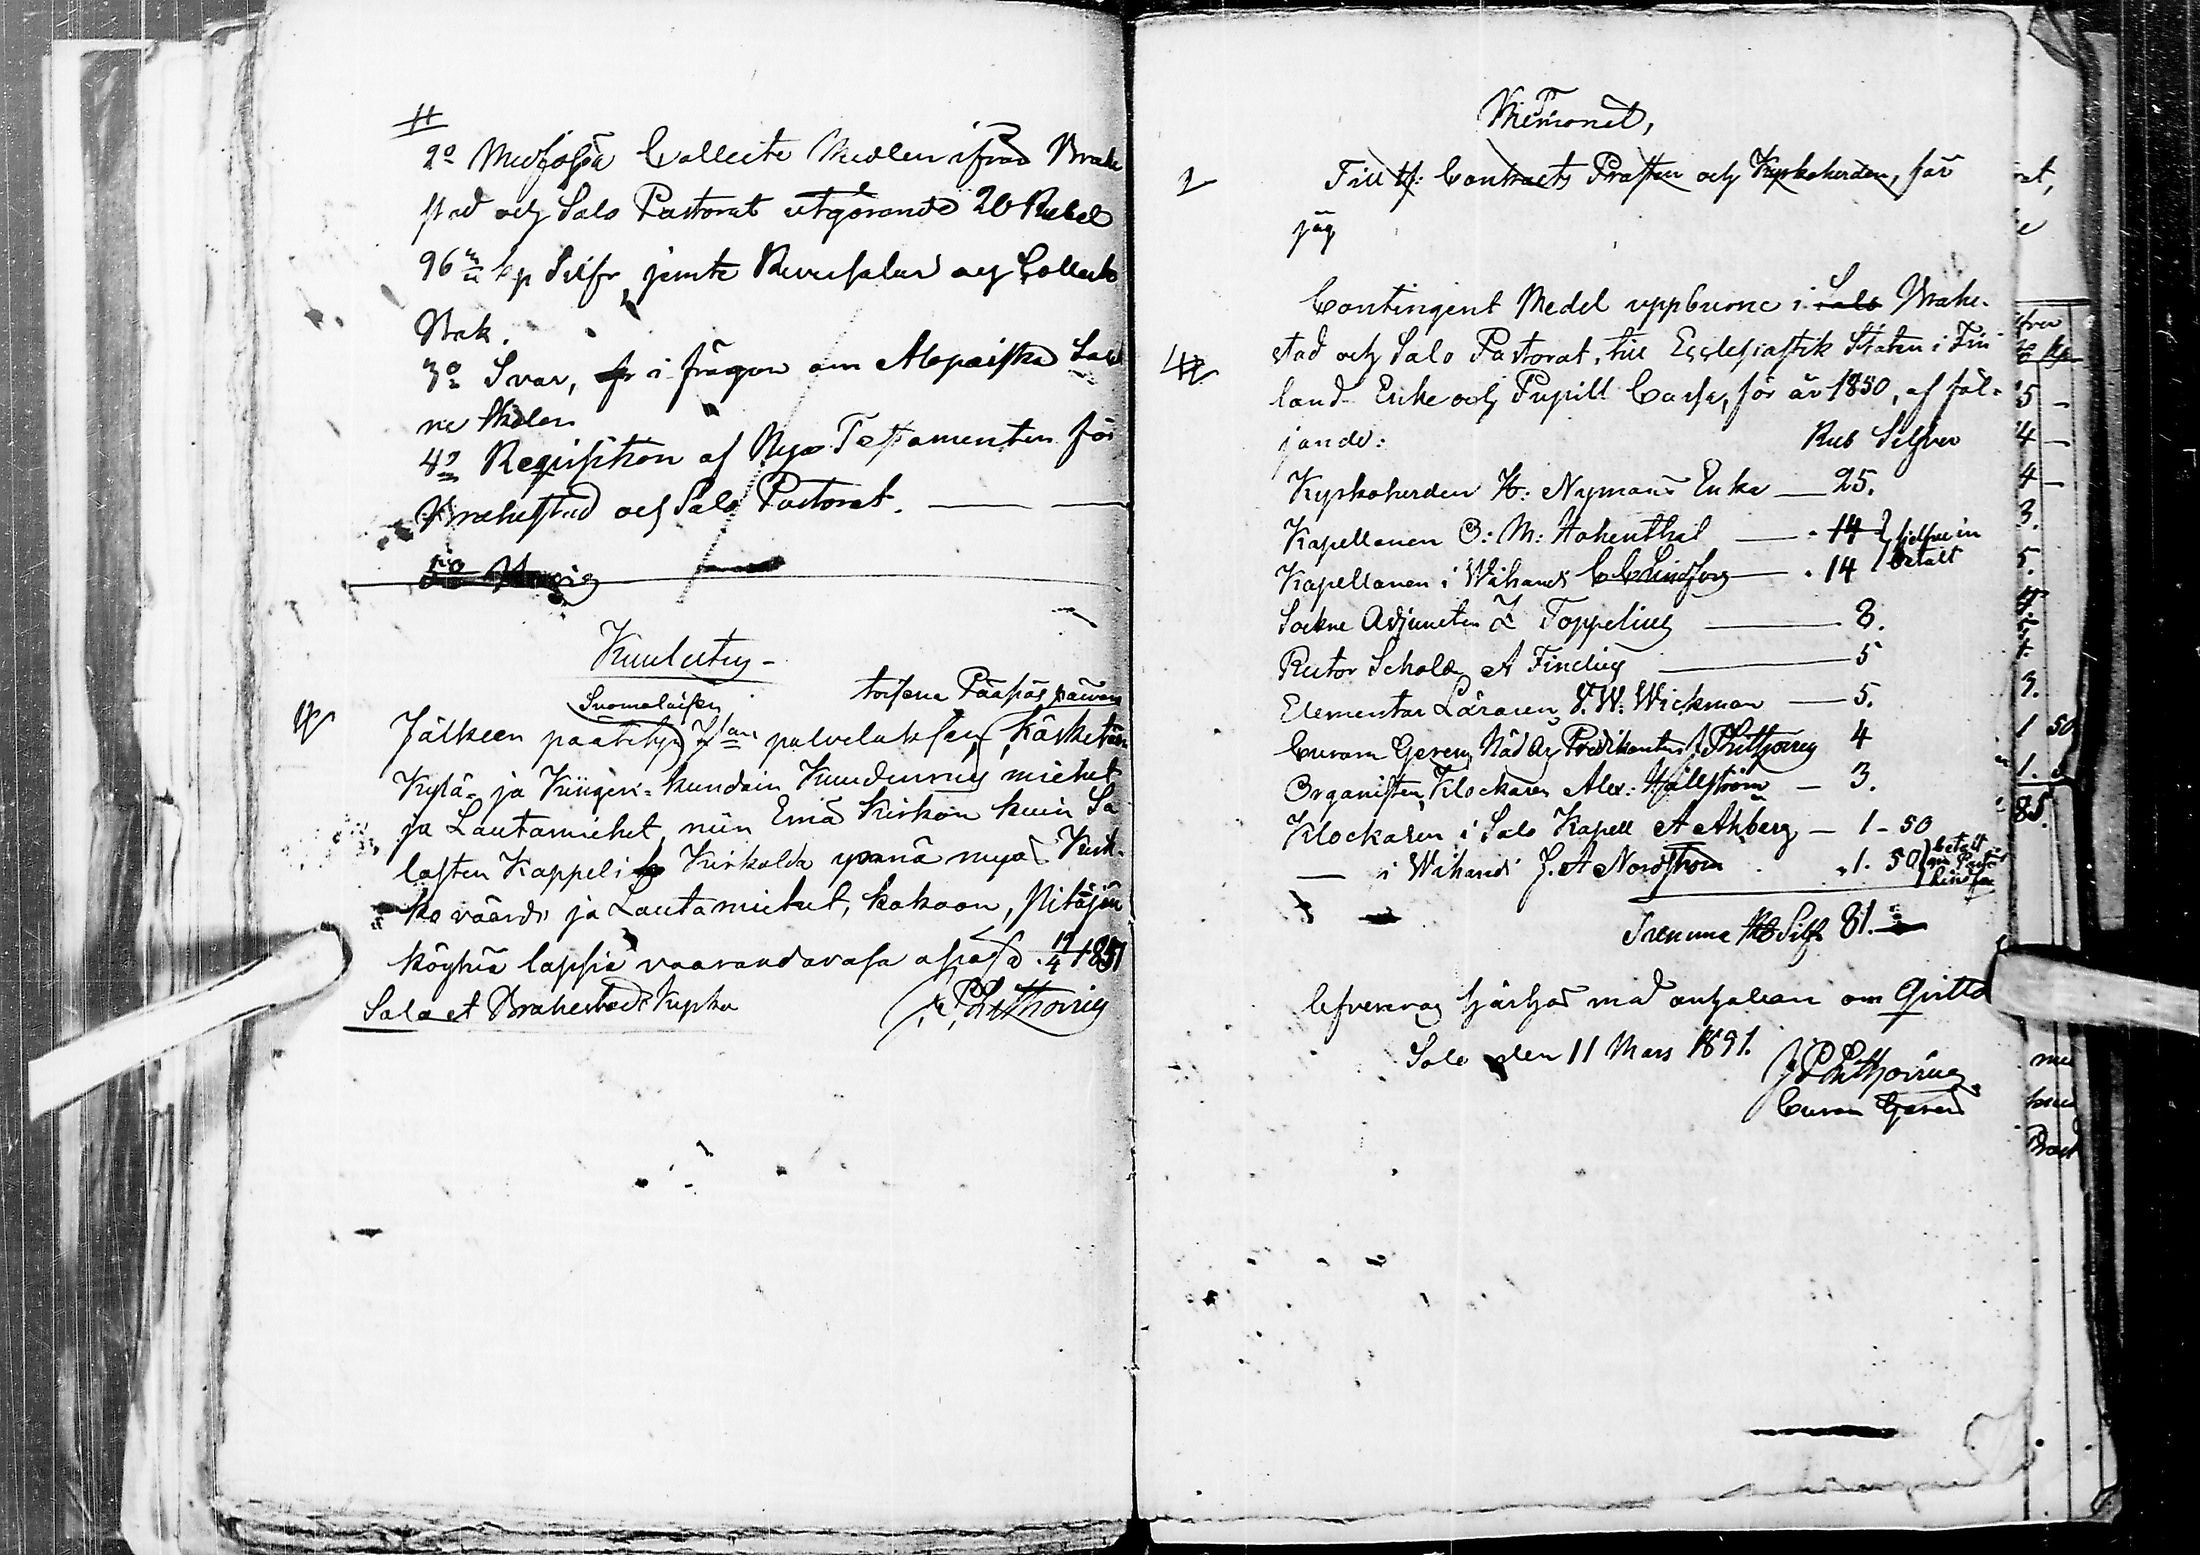 2o Medfölja Collecte Medlen ifrån Brahe
stad och Salo Pastorat utgörande 20 Rubel
96 kp Silfr jemte Reversaler och Collect
Bok.
3o Svar, i frågan om Alpaiska
ne
4o Requisition af Nya Testamenten för
Brahestad och Salo Pastorat.
5o
Kuulutus
Suomalaisen toisena Pääsiäs päivän
Jälkeen päätetyn palveluksen, käsketän
Kylä- ja Kingeri-kundain Kuudennus miehet
ja Lautamiehet niin Emä Kirkon kuin Sa
losten Kappeli Kirkolda ynnä myös Kirk-
ko väärdi ja Lautamiehet, kokoon, Pitäjän
köyhiä lapsia vaarandavasa asiasa. 19/4 1851
Salo et Brahestads Kyrka J. P. Thorvig
Memorial,
2 Till Tf: Contracts Prosten och Kyrkoherden, får
jag
Contingent Medel uppburne i Salo Brahe-
stad och Salo Pastorat, till Ecclesiastik Staten i Fin
land Enke och Pupill Cassa, för år 1850, af föl-
jande: Rub Silfver
Kyrkoherden H: Nymans Enka — 25.
Kapellanen O: M: Hohenthal — 14
Kapellanen i Wihandi C C Lindfors — 14 betalt
Sockne Adjuncten Z Toppelius — 8.
Rector Scholæ A Findlig — 5
Elementar Läraren V. W: Wickman — 5.
Curam Gerens Nåd Års Predikanten 4
Organisten, Klockaren Alex: Hällström — 3.
Klockaren i Salo Kapell A Ahberg — 1-50
— i Wihandi J. A Nordström 1. 50 betalt
Summa Rb Silfr 81.
lefvereras härhos med anhållan om Qvitto
Salo den 11 Mars 1851.
Curam Gerens